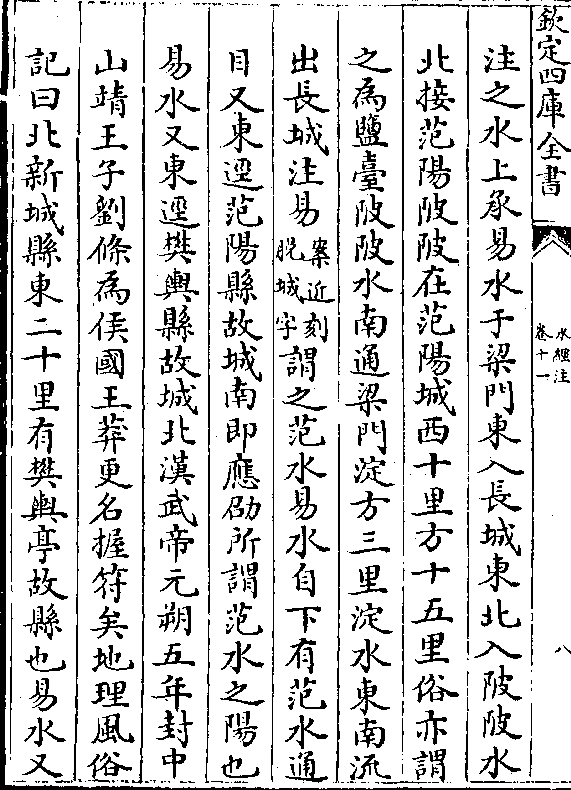 欽定四庫全書
水經注
卷十一
八
注之水上承易水于梁門東入長城東北入陂陂水
北接范陽陂陂在范陽城西十里方十五里俗亦謂
之為鹽臺陂陂水南通梁門淀方三里淀水東南流
出長城注易案近刻脫城字謂之范水易水自下有范水通
目又東逕范陽縣故城南即應劭所謂范水之陽也
易水又東逕樊輿縣故城北漢武帝元朔五年封中
山靖王子劉條為侯國王莽更名握符矣地理風俗
記曰北新城縣東二十里有樊輿亭故縣也易水又